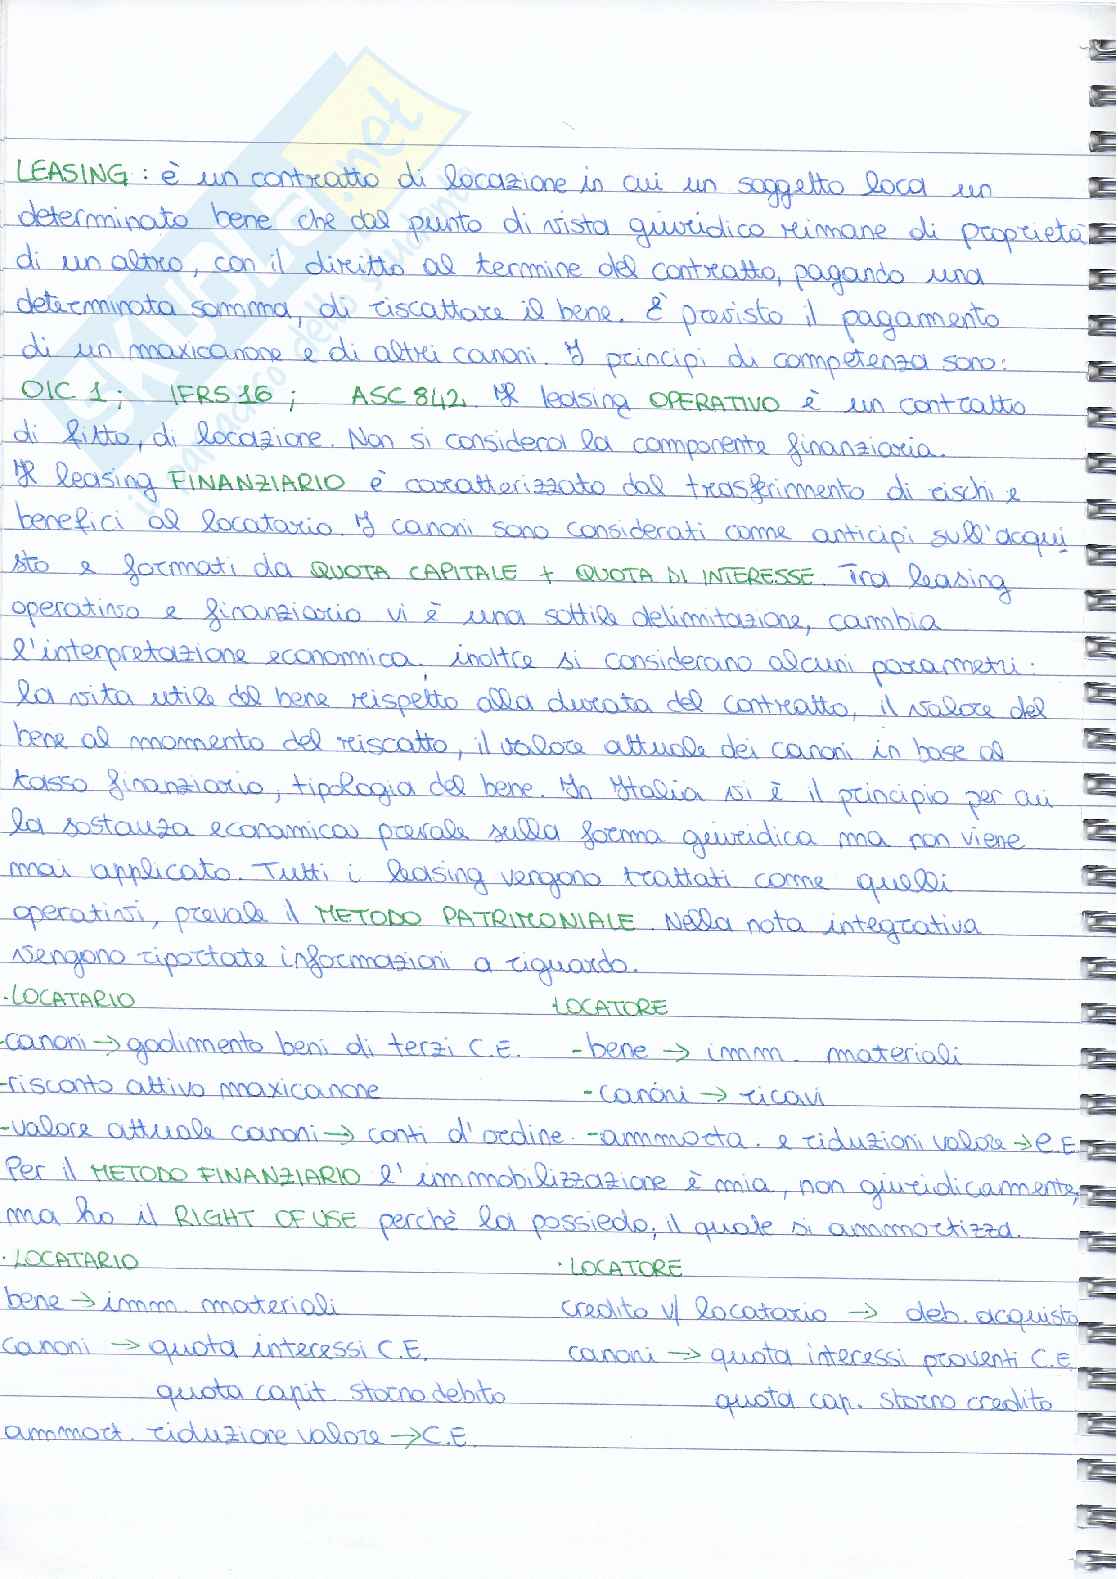 LEASING : è un contratto di locazione in cui un soggetto loca un
determinato bene che dal punto di vista giuridico rimane di proprietà
di un altro, con il diritto al termine del contratto, pagando una
determinata somma, di riscattare il bene. È previsto il pagamento
di un maxicanone e di altri canoni. I principi di competenza sono:
OIC 1 ; IFRS 16 ; ASC 842. Il leasing OPERATIVO è un contratto
di fitto, di locazione. Non si considera la componente finanziaria.
Il leasing FINANZIARIO è caratterizzato dal trasferimento di rischi e
benefici al locatario. I canoni sono considerati come anticipi sull'acqui
sto e formati da QUOTA CAPITALE + QUOTA DI INTERESSE. Tra leasing
operativo e finanziario vi è una sottile delimitazione, cambia
l'interpretazione economica. inoltre si considerano alcuni parametri:
la vita utile del bene rispetto alla durata del contratto, il valore del
bene al momento del riscatto, il valore attuale dei canoni in base al
tasso finanziario, tipologia del bene. In Italia vi è il principio per cui
la sostanza economica prevale sulla forma giuridica ma non viene
mai applicato. Tutti i leasing vengono trattati come quelli
operativi, prevale il METODO PATRIMONIALE. Nella nota integrativa
vengono riportate informazioni a riguardo.
·LOCATARIO ·LOCATORE
-canoni → godimento beni di terzi C.E. -bene → imm. materiali
-risconto attivo maxicanone -canoni → ricavi
-valore attuale canoni → conti d'ordine. -ammorta. e riduzioni valore → C.E.
Per il METODO FINANZIARIO l'immobilizzazione è mia, non giuridicamente,
ma ho il RIGHT OF USE perchè la possiedo, il quale si ammortizza.
· LOCATARIO · LOCATORE
bene → imm. materiali credito v/ locatario → deb. acquisto
canoni → quota interessi C.E. canoni → quota interessi proventi C.E.
quota capit. storno debito quota cap. storno credito
ammort. riduzione valore → C.E.
SKUOLA.net
il paradiso dello studente